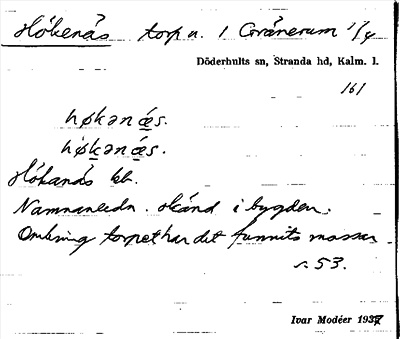 Hökenäs torp u. 1 Gränerum 1/4
Döderhults sn, Stranda hd, Kalm. l.
161
høkənæ̲s.
hø̀k̲ənæ̲s.
Hökanäs kb.
Namnanledn. okänd i bygden.
Omkring torpet har det funnits mossar
s. 53.
Ivar Modéer 1937